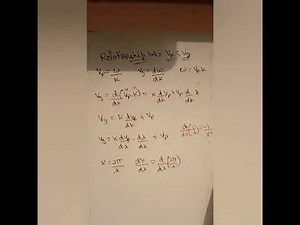 Relationship b/w Vp & Vg
Vp = ω/k Vg = dω/dk ω = Vp k
Vg = d/dk (Vp·k) = k dVp/dk + Vp dk/dk
Vg = k dVp/dk + Vp
Vg = k dVp/dλ · dλ/dk + Vp
k = 2π/λ dk/dλ = d/dλ (2π/λ)